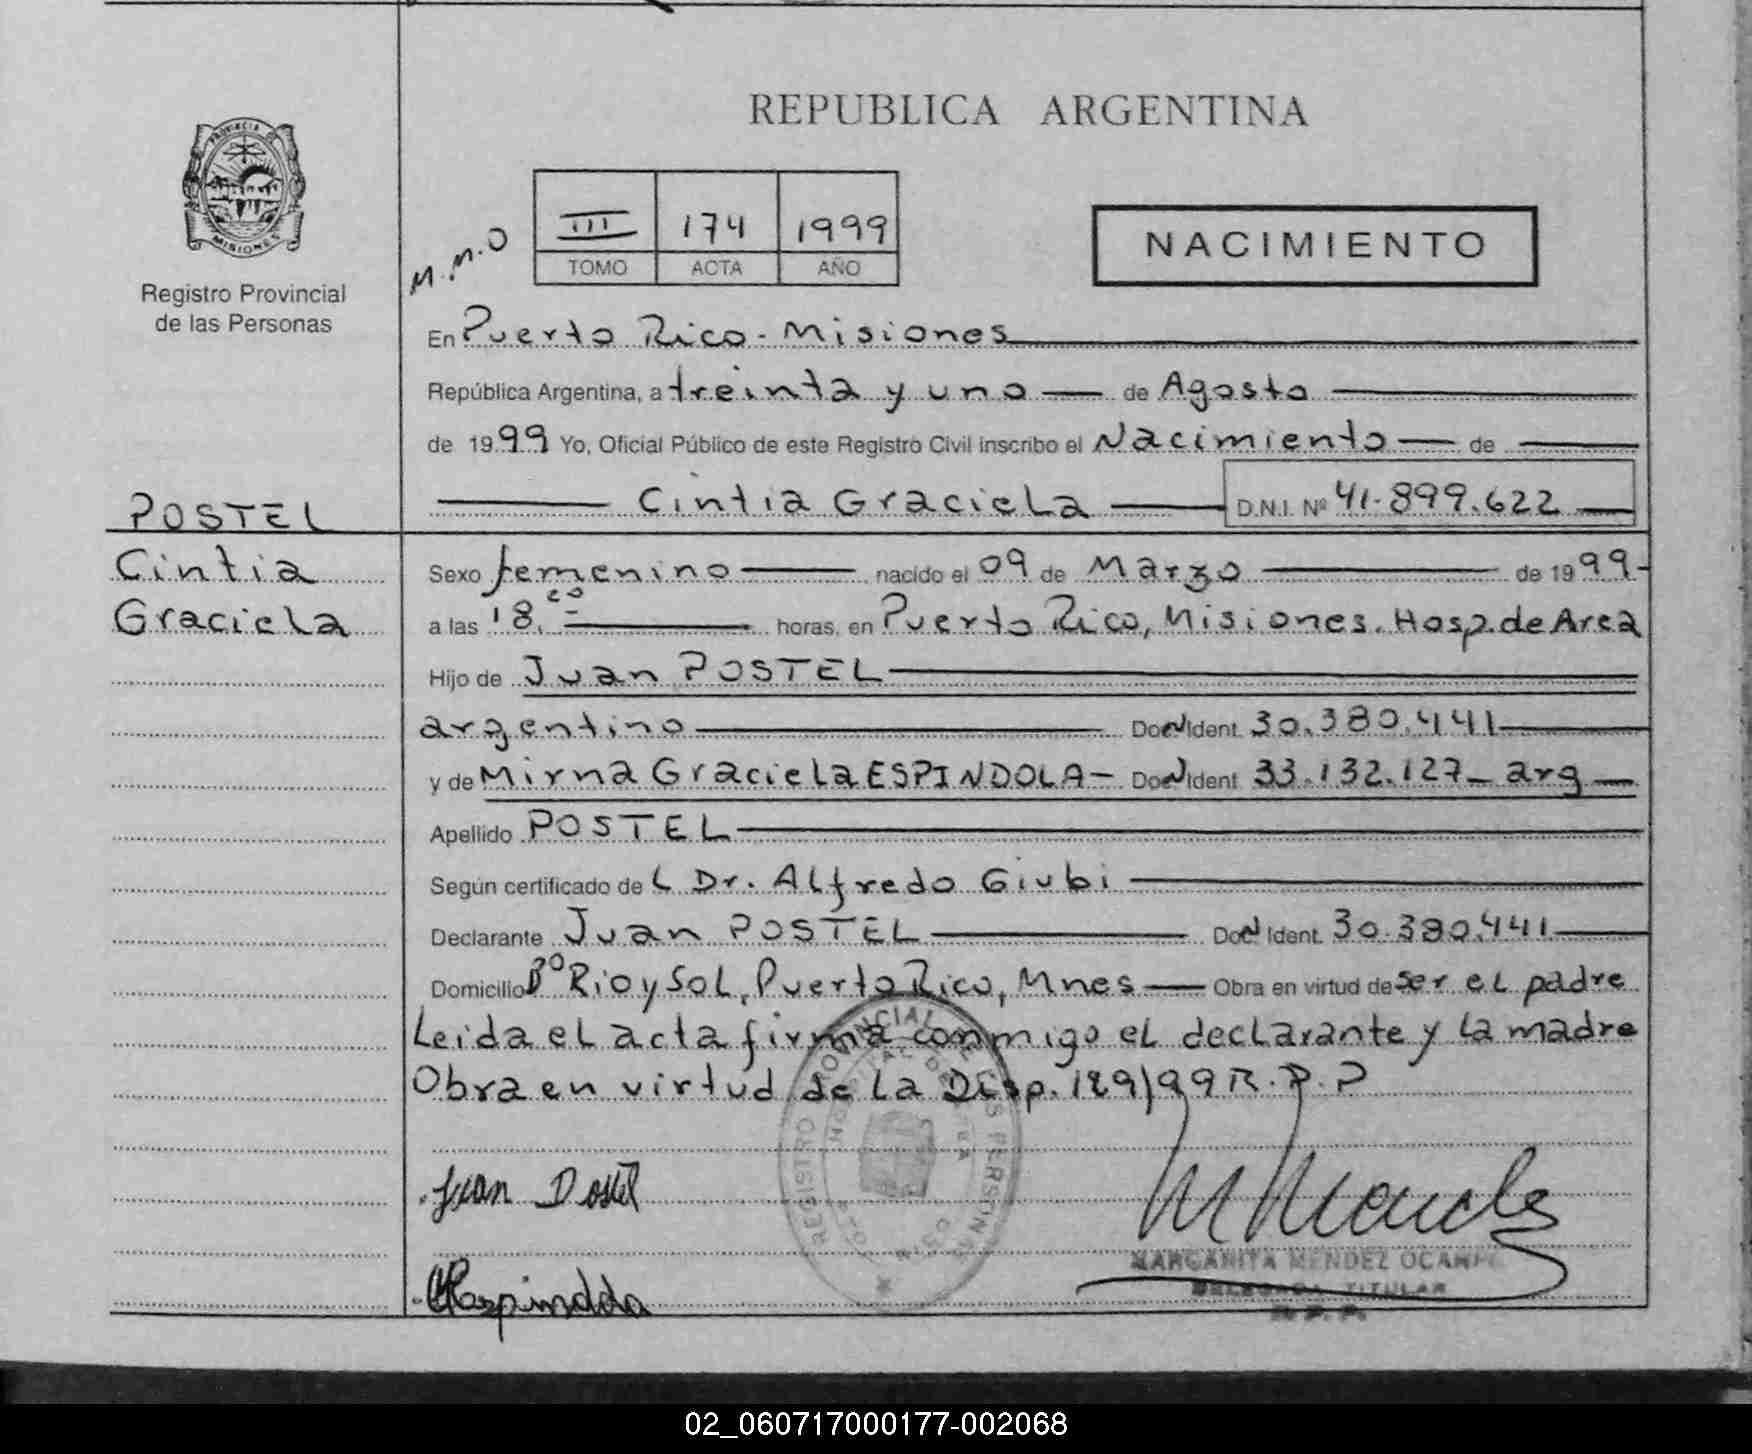 REPUBLICA ARGENTINA
PROVINCIA DE
MISIONES
Registro Provincial
de las Personas
M.M.O
III 174 1999
TOMO ACTA AÑO
NACIMIENTO
En Puerto Rico - Misiones
República Argentina, a treinta y uno de Agosto
de 1999 Yo, Oficial Público de este Registro Civil inscribo el Nacimiento de
Cintia Graciela D.N.I. Nº 41.899.622
POSTEL
Cintia
Graciela
Sexo femenino nacido el 09 de Marzo de 1999
a las 18.00 horas, en Puerto Rico, Misiones. Hosp. de Area
Hijo de Juan POSTEL
argentino Doc Ident. 30.380.441
y de Mirna Graciela ESPINDOLA - Doc Ident. 33.132.127 - arg
Apellido POSTEL
Según certificado del Dr. Alfredo Giubi
Declarante Juan POSTEL Doc Ident. 30.380.441
Domicilio Bº Rio y Sol, Puerto Rico, Mnes Obra en virtud de ser el padre
Leida el acta firma conmigo el declarante y la madre
Obra en virtud de la Disp. 189/99 R.P.P
REGISTRO PROVINCIAL DE LAS PERSONAS
Juan Postel
Espindola
MARGARITA MENDEZ OCAMPO
DELEGADA TITULAR
R.P.P.
02_060717000177-002068